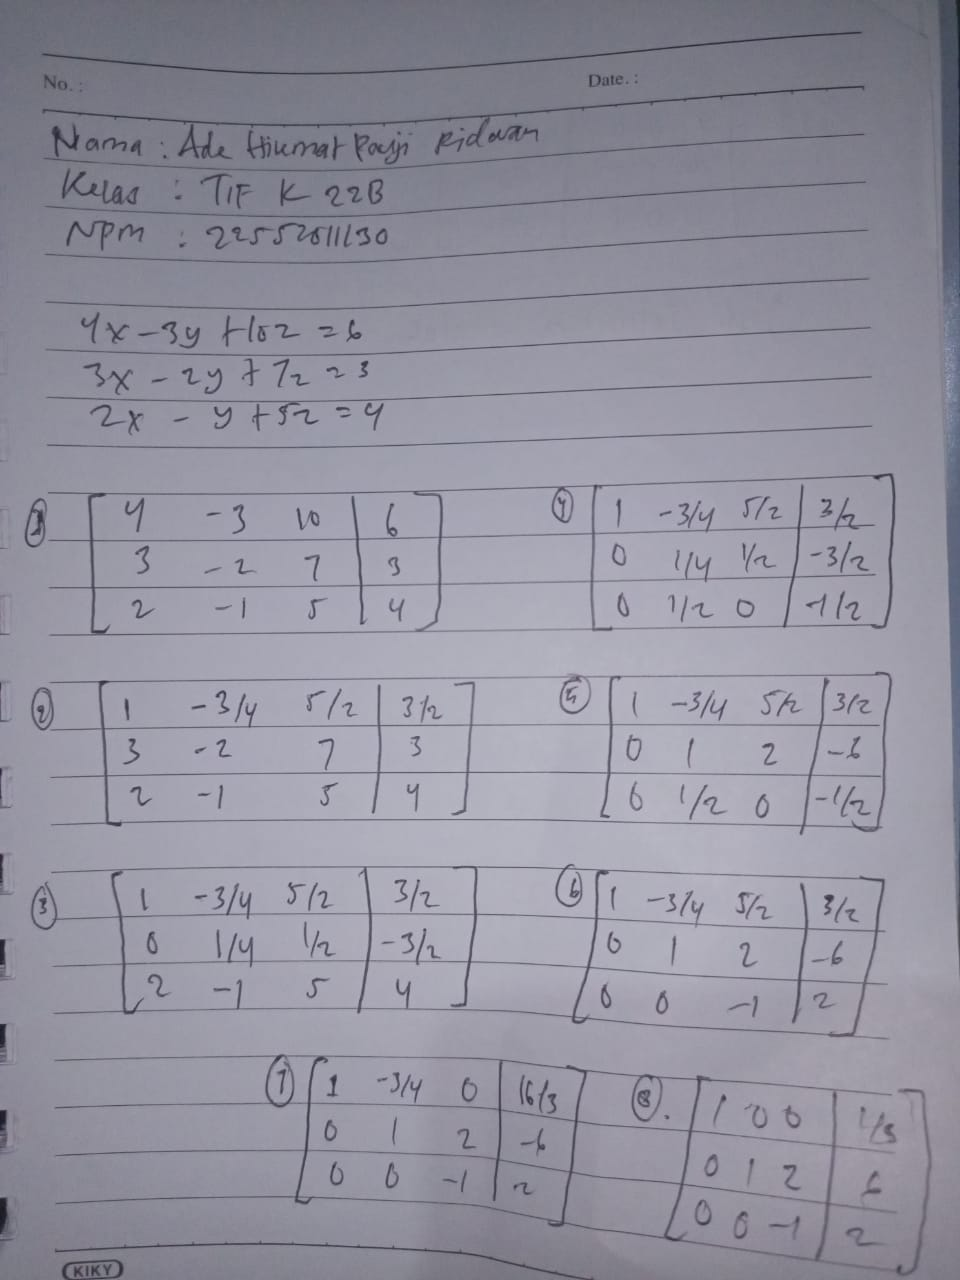 No. :
Date. :
Nama : Ade Hikmat Pauji Ridwan
Kelas : TIF K 22B
NPM : 22552011130
4x - 3y + 10z = 6
3x - 2y + 7z = 3
2x - y + 5z = 4
1 4 -3 10 | 6
3 -2 7 | 3
2 -1 5 | 4
2 1 -3/4 5/2 | 3/2
3 -2 7 | 3
2 -1 5 | 4
3 1 -3/4 5/2 | 3/2
0 1/4 1/2 | -3/2
2 -1 5 | 4
4 1 -3/4 5/2 | 3/2
0 1/4 1/2 | -3/2
0 1/2 0 | -1/2
5 1 -3/4 5/2 | 3/2
0 1 2 | -6
0 1/2 0 | -1/2
6 1 -3/4 5/2 | 3/2
0 1 2 | -6
0 0 -1 | 2
7 1 -3/4 0 | 16/3
0 1 2 | -6
0 0 -1 | 2
8. 1 0 0 |
0 1 2 | 6
0 0 -1 | 2
KIKY